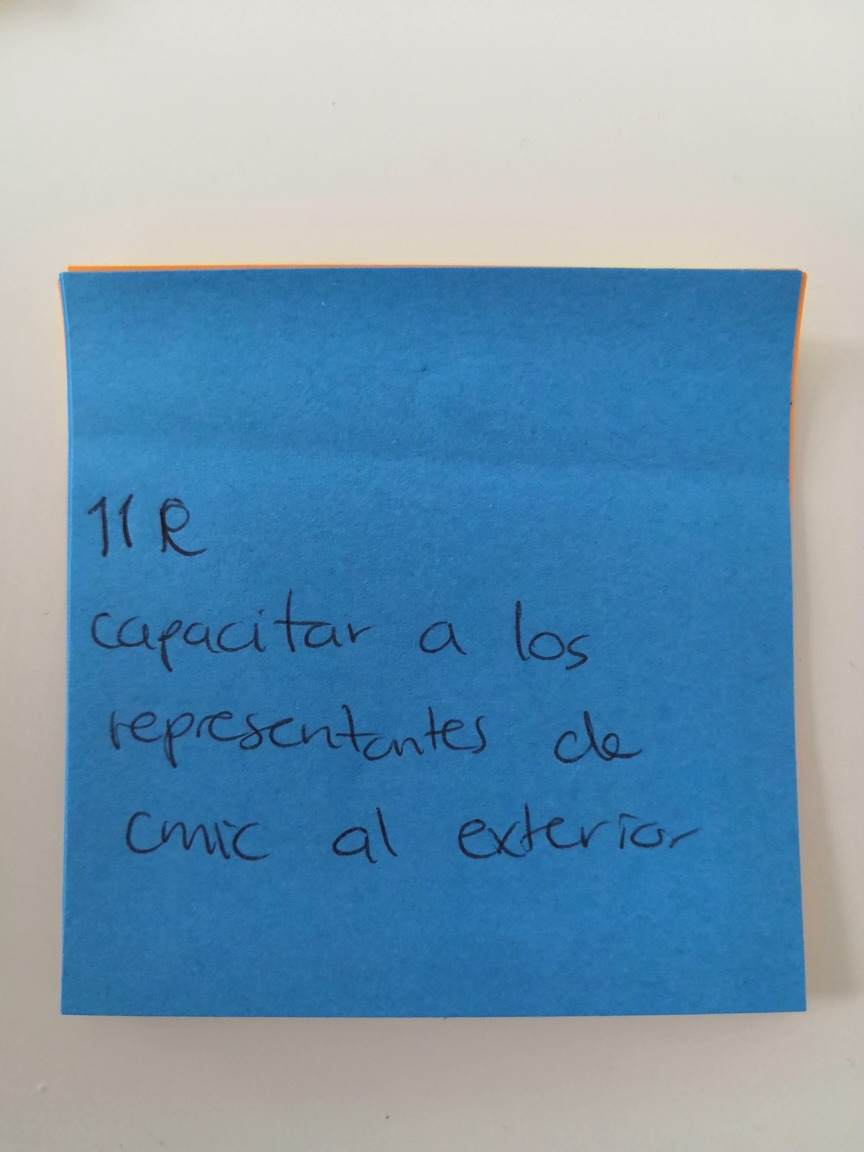 11R
capacitar a los
representantes de
cmic al exterior